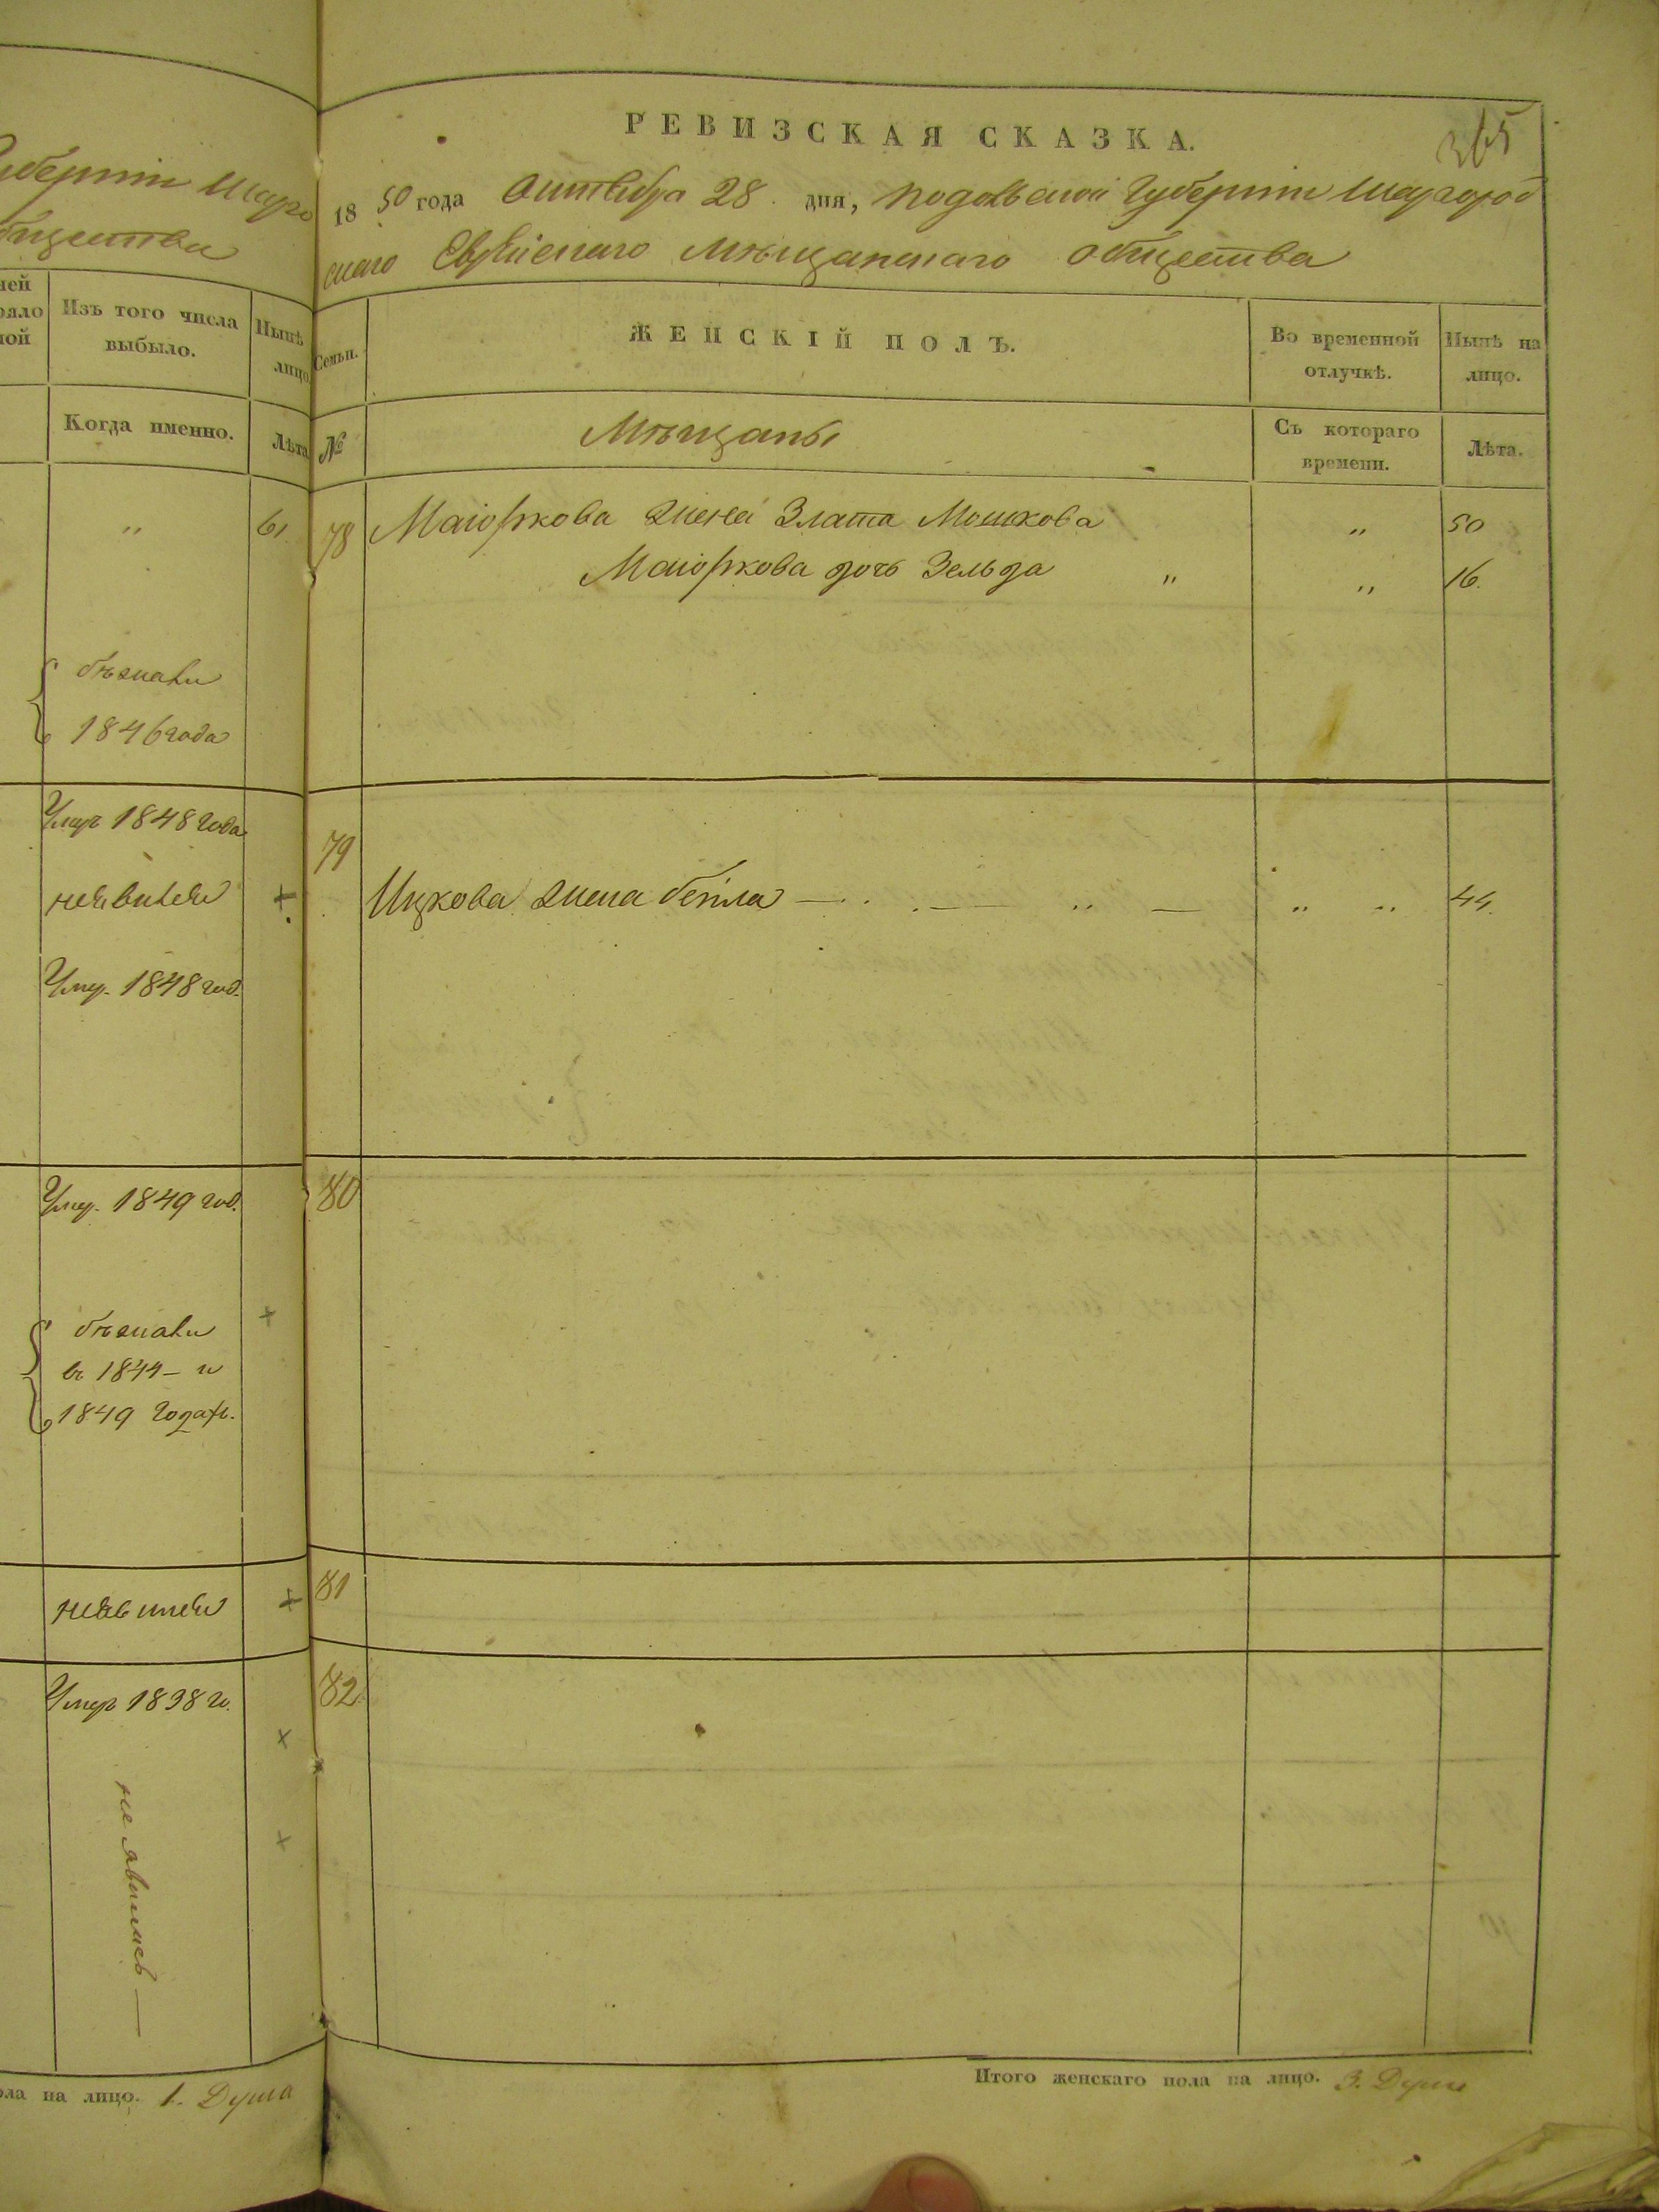 Губерніи Шарго
общества
ней
рало
ной
Изъ того числа
выбыло.
Нынѣ
лицо
Когда именно.
Лѣта
" 61
бѣжали
1846 года
Умеръ 1848 года
неявился +
Умер. 1848 год.
Умер. 1849 год.
бѣжали
въ 1844 – и
1849 годахъ.
+
неявился +
Умеръ 1838 го.
+
не явились —
+
ола на лицо. 1. Душа
РЕВИЗСКАЯ СКАЗКА.
365
1850 года Октября 28 дня, Подольской Губерніи Шаргород
скаго Еврейскаго Мѣщанскаго общества
Семьи.
ЖЕНСКІЙ ПОЛЪ.
Во временной
отлучкѣ.
Нынѣ на
лицо.
№
Мѣщаны
Съ котораго
времени.
Лѣта.
78 Маіоркова жена Злата Мошкова " 50
Маіоркова дочь Зельда " " 16.
79
Ицкова жена бейла — " — " " 44.
80
81
82
Итого женскаго пола на лицо. 3. Души